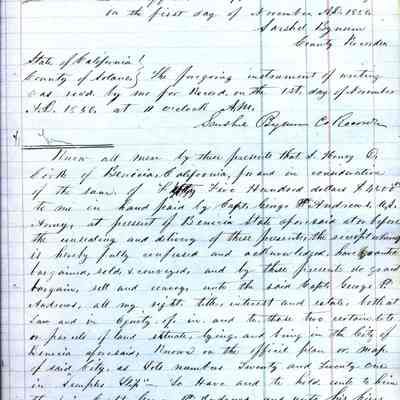 on the first day of November A.D. 1850
Sarshel Bynum
County Recorder
State of California }
County of Solano } The foregoing instrument of writing
was recd. by me for Record, on the 1st day of November
A.D. 1850. at 11 o'clock A.M.
Sarshel Bynum Co Recorder
Know all men by these presents that I, Henry
of Benicia California, for and in consideration
of the sum of Five Hundred dollars
to me in hand paid by Capt. George P. Andrews, U.S.
Army, at present of Benicia State aforesaid at or before
the ensealing and delivery of these presents, the receipt whereof
is hereby fully confessed and acknowledged, have granted
bargained, sold & conveyed, and by these presents do grant
bargain, sell and convey, unto the said Capt. George P.
Andrews, all my right title, interest and estate, both at
Law and in Equity, of in and to those two certain lots
or parcels of land situate, lying, and being in the City of
Benicia aforesaid, Known on the official plan or map
of said City, as Lots numbers Twenty and Twenty One
in "Semples Slip" To Have and to hold unto to him
the said Capt. Geo. P. Andrews, and unto his heirs